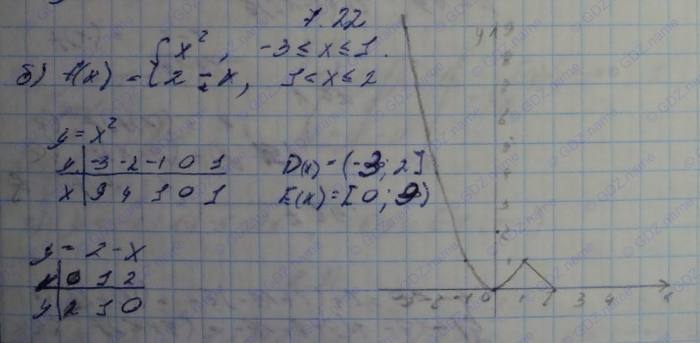 7.22
б) f(x) = { x², -3 ≤ x ≤ 1.
2 - x, 1 < x ≤ 2
y = x²
y | -3 -2 -1 0 1
x | 9 4 1 0 1
D(x) = (-3; 2]
E(x) = [0; 9)
y = 2 - x
x | 0 1 2
y | 2 1 0
y
-3 -2 -1 0 1 2 3 4 x
© GDZ.name